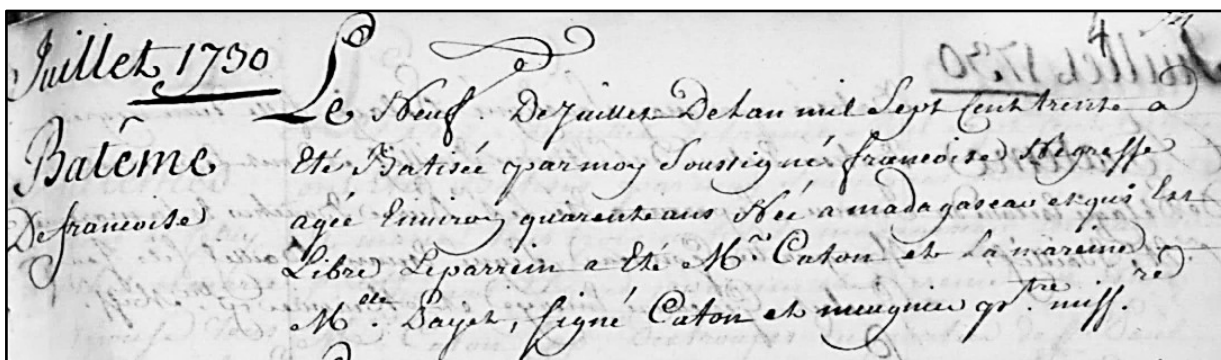 Juillet 1730
Batême
De francoise
4
Le Neuf. De Juillet De Lan mil Sept Cent trente a
Eté Batisée par moy Soussigné francoise Negresse
agée Environ quarente ans Née a madagascar et qui Est
Libre Le parrein a Eté Mr. Caton et La mareine
Mde. Payet, signé Caton et meugnie ptre. miss.re